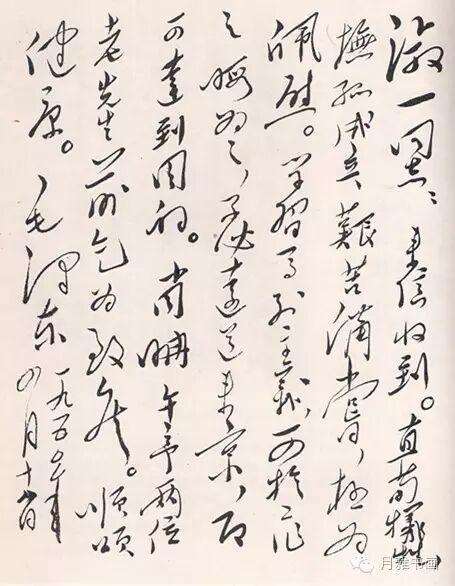 淑一同志：来信收到。直荀犠牲，
撫孤成立，艱苦備嘗，極为
佩慰。学習马列主義，可於工作
之暇为之，不必遠道来京，即
可達到目的。肖聃午亭两位
老先生前乞为致候。順頌
健康。毛澤东 一九五〇年四月十八日
月雅书画